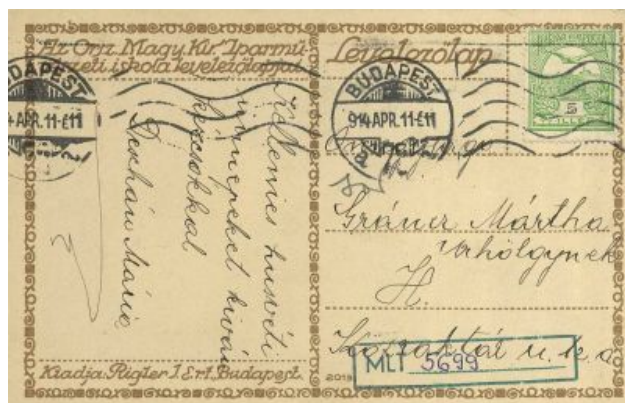 Az Orsz. Magy. Kir. Iparmű-
vészeti iskola levelezőlapjai
Levelezőlap
BUDAPEST
4 APR. 11-E11
BUDAPEST
914 APR. 11-E11
MAGYAR KIR. POSTA
5
FILLÉR
Kellemes husvéti
ünnepeket kiván
kézcsókkal
Derhán Mária
Gráner Mártha
urhölgynek
H.
u. 12 a
MLT 5699
Kiadja: Rigler J. E. r.t. Budapest.